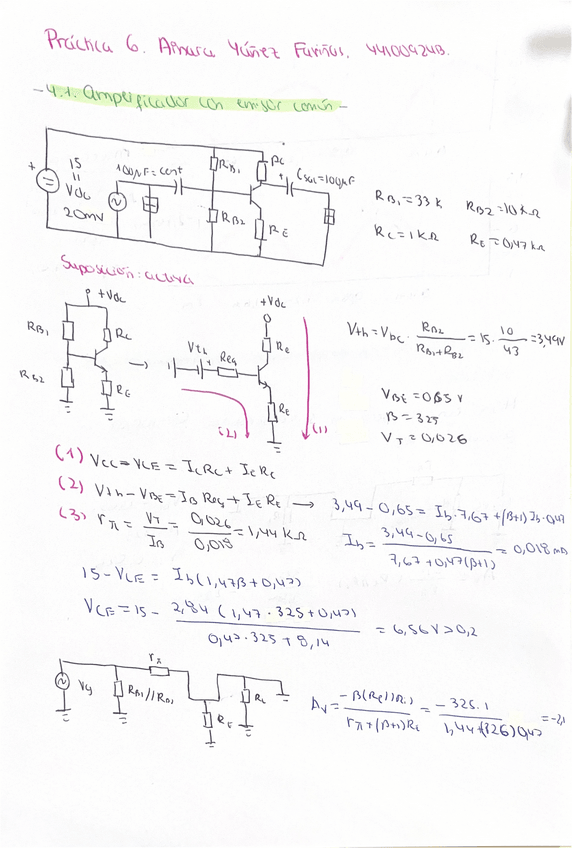 Práctica 6. Ainara Yáñez Fariñas. 44100924B.
- 4.1. Amplificador con emisor común -
+
15
=
VDC
20mV
100µF = Cent
RB1
RC
+
Csal = 100µF
RB2
RE
RB1 = 33 k RB2 = 10 kΩ
RC = 1 kΩ RE = 0,47 kΩ
Suposición: activa
+Vdc
RB1
RC
RB2
RE
Vth
+
Req
+Vdc
Rc
RE
(2)
(1)
Vth = VDC · RB2 / RB1+RB2 = 15 · 10 / 43 = 3,49V
VBE = 0,65 V
B = 325
VT = 0,026
(1) VCC - VCE = ICRC + IERE
(2) Vth - VBE = IB Req + IE RE → 3,49 - 0,65 = Ib · 7,67 + (β+1) Ib · 0,47
(3) rπ = VT / IB = 0,026 / 0,018 = 1,44 KΩ
Ib = 3,49 - 0,65 / 7,67 + 0,47(β+1) = 0,018 mA
15 - VCE = Ib (1,47β + 0,47)
VCE = 15 - 2,84 (1,47 · 325 + 0,47) / 0,47 · 325 + 8,14 = 6,56 V > 0,2
Vg
rπ
RB1//RB2
RE
RL
AV = -β(RC//RL) / rπ + (β+1)RE = -325 · 1 / 1,44 + (326) 0,47 = -2,1